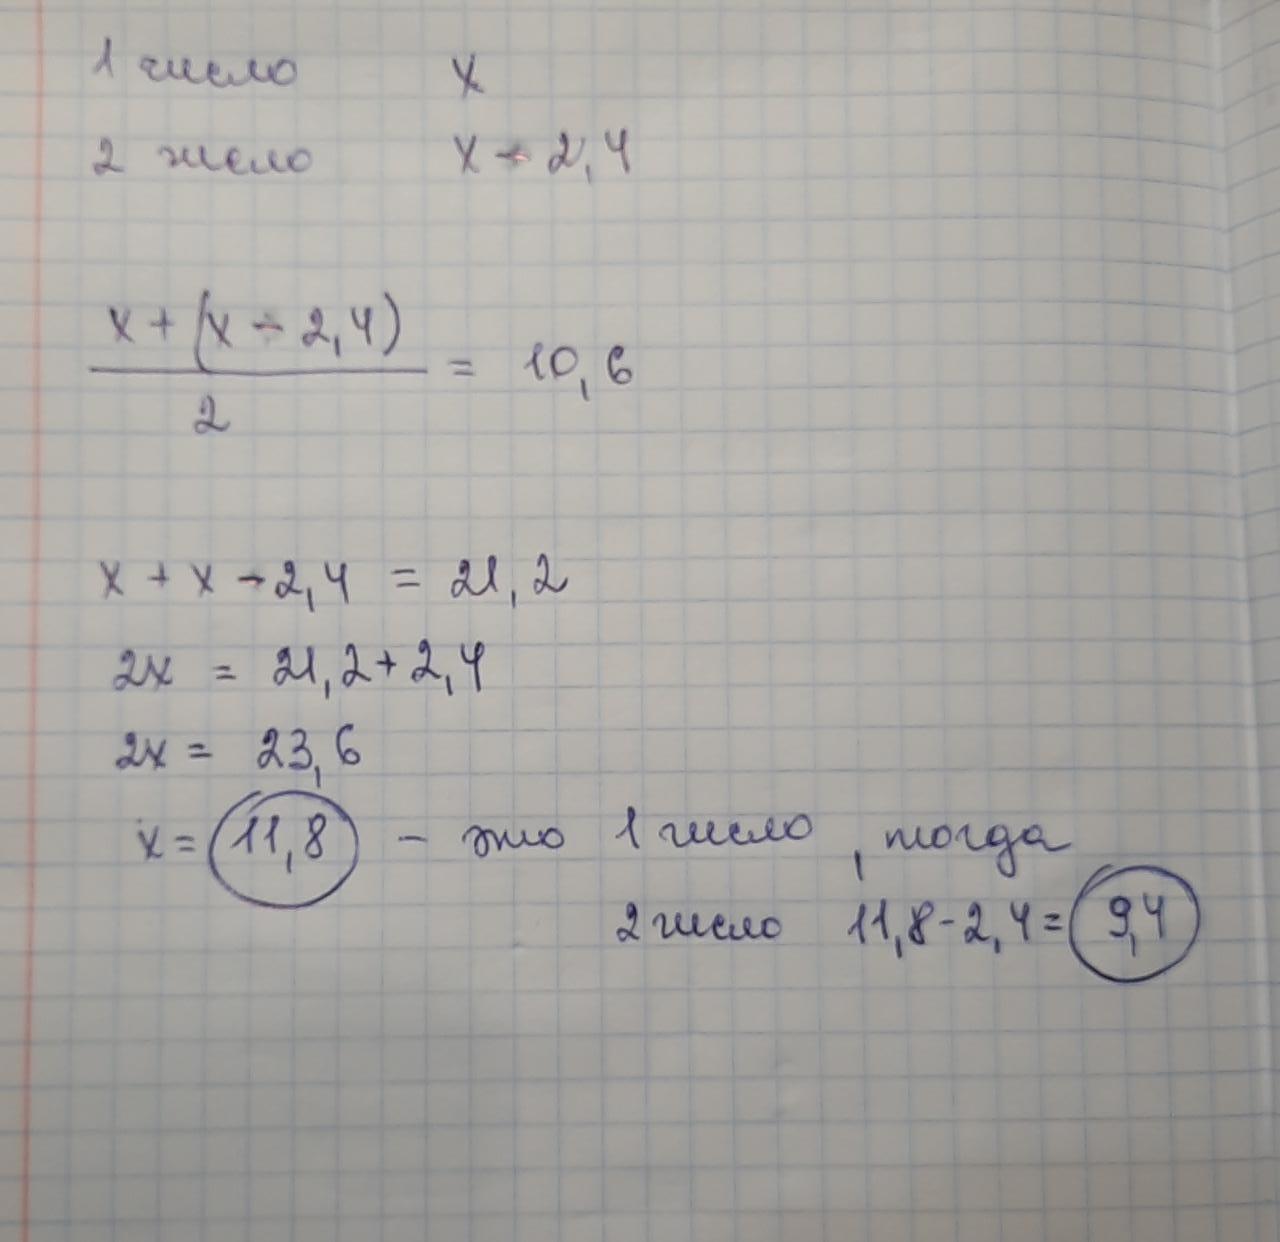 1 число x
2 число x - 2,4
x + (x - 2,4)
= 10,6
2
x + x - 2,4 = 21,2
2x = 21,2 + 2,4
2x = 23,6
x = 11,8 - это 1 число, тогда
2 число 11,8 - 2,4 = 9,4